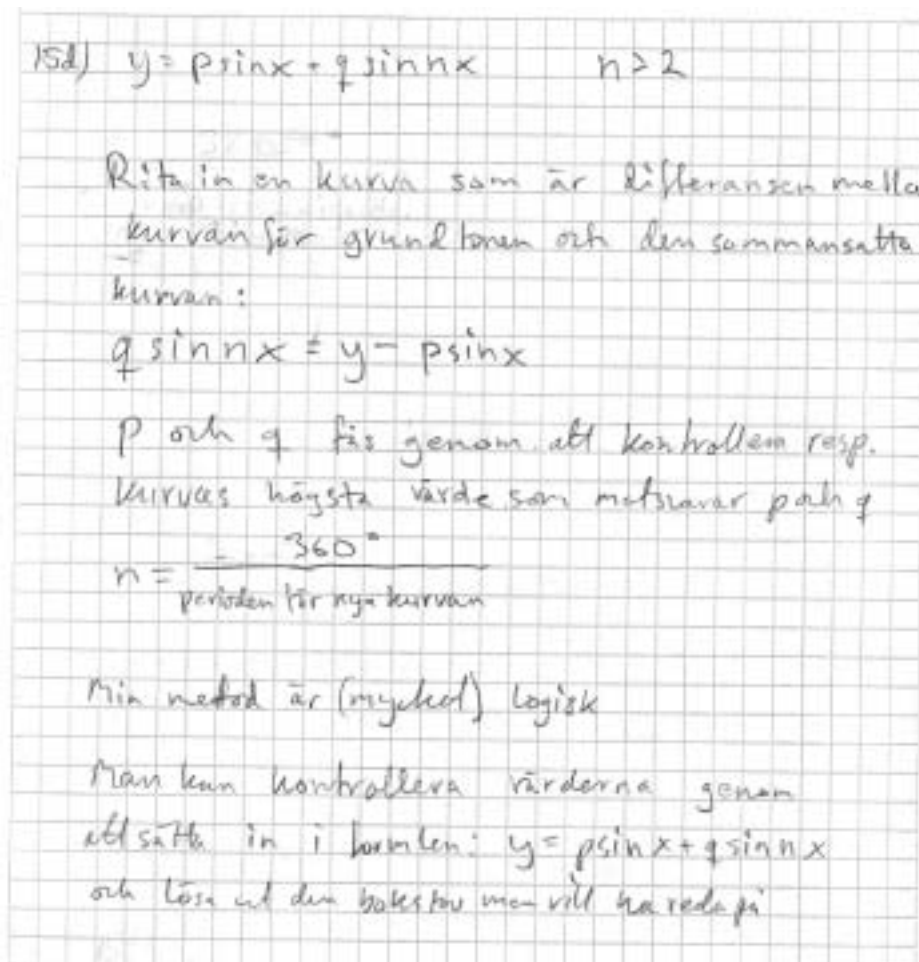 15d) y = p sinx + q sinnx n > 2
Rita in en kurva som är differansen mella
kurvan för grundtonen och den sammansatta
kurvan:
q sinnx = y - psinx
p och q fås genom att kontrollera resp.
kurvas högsta värde som motsvarar p och q
n = 360°
perioden för nya kurvan
Min metod är (mycket) logisk
Man kan kontrollera värderna genom
att sätta in i formlen: y = psinx + q sinnx
och lösa ut den bokstav man vill ha reda på